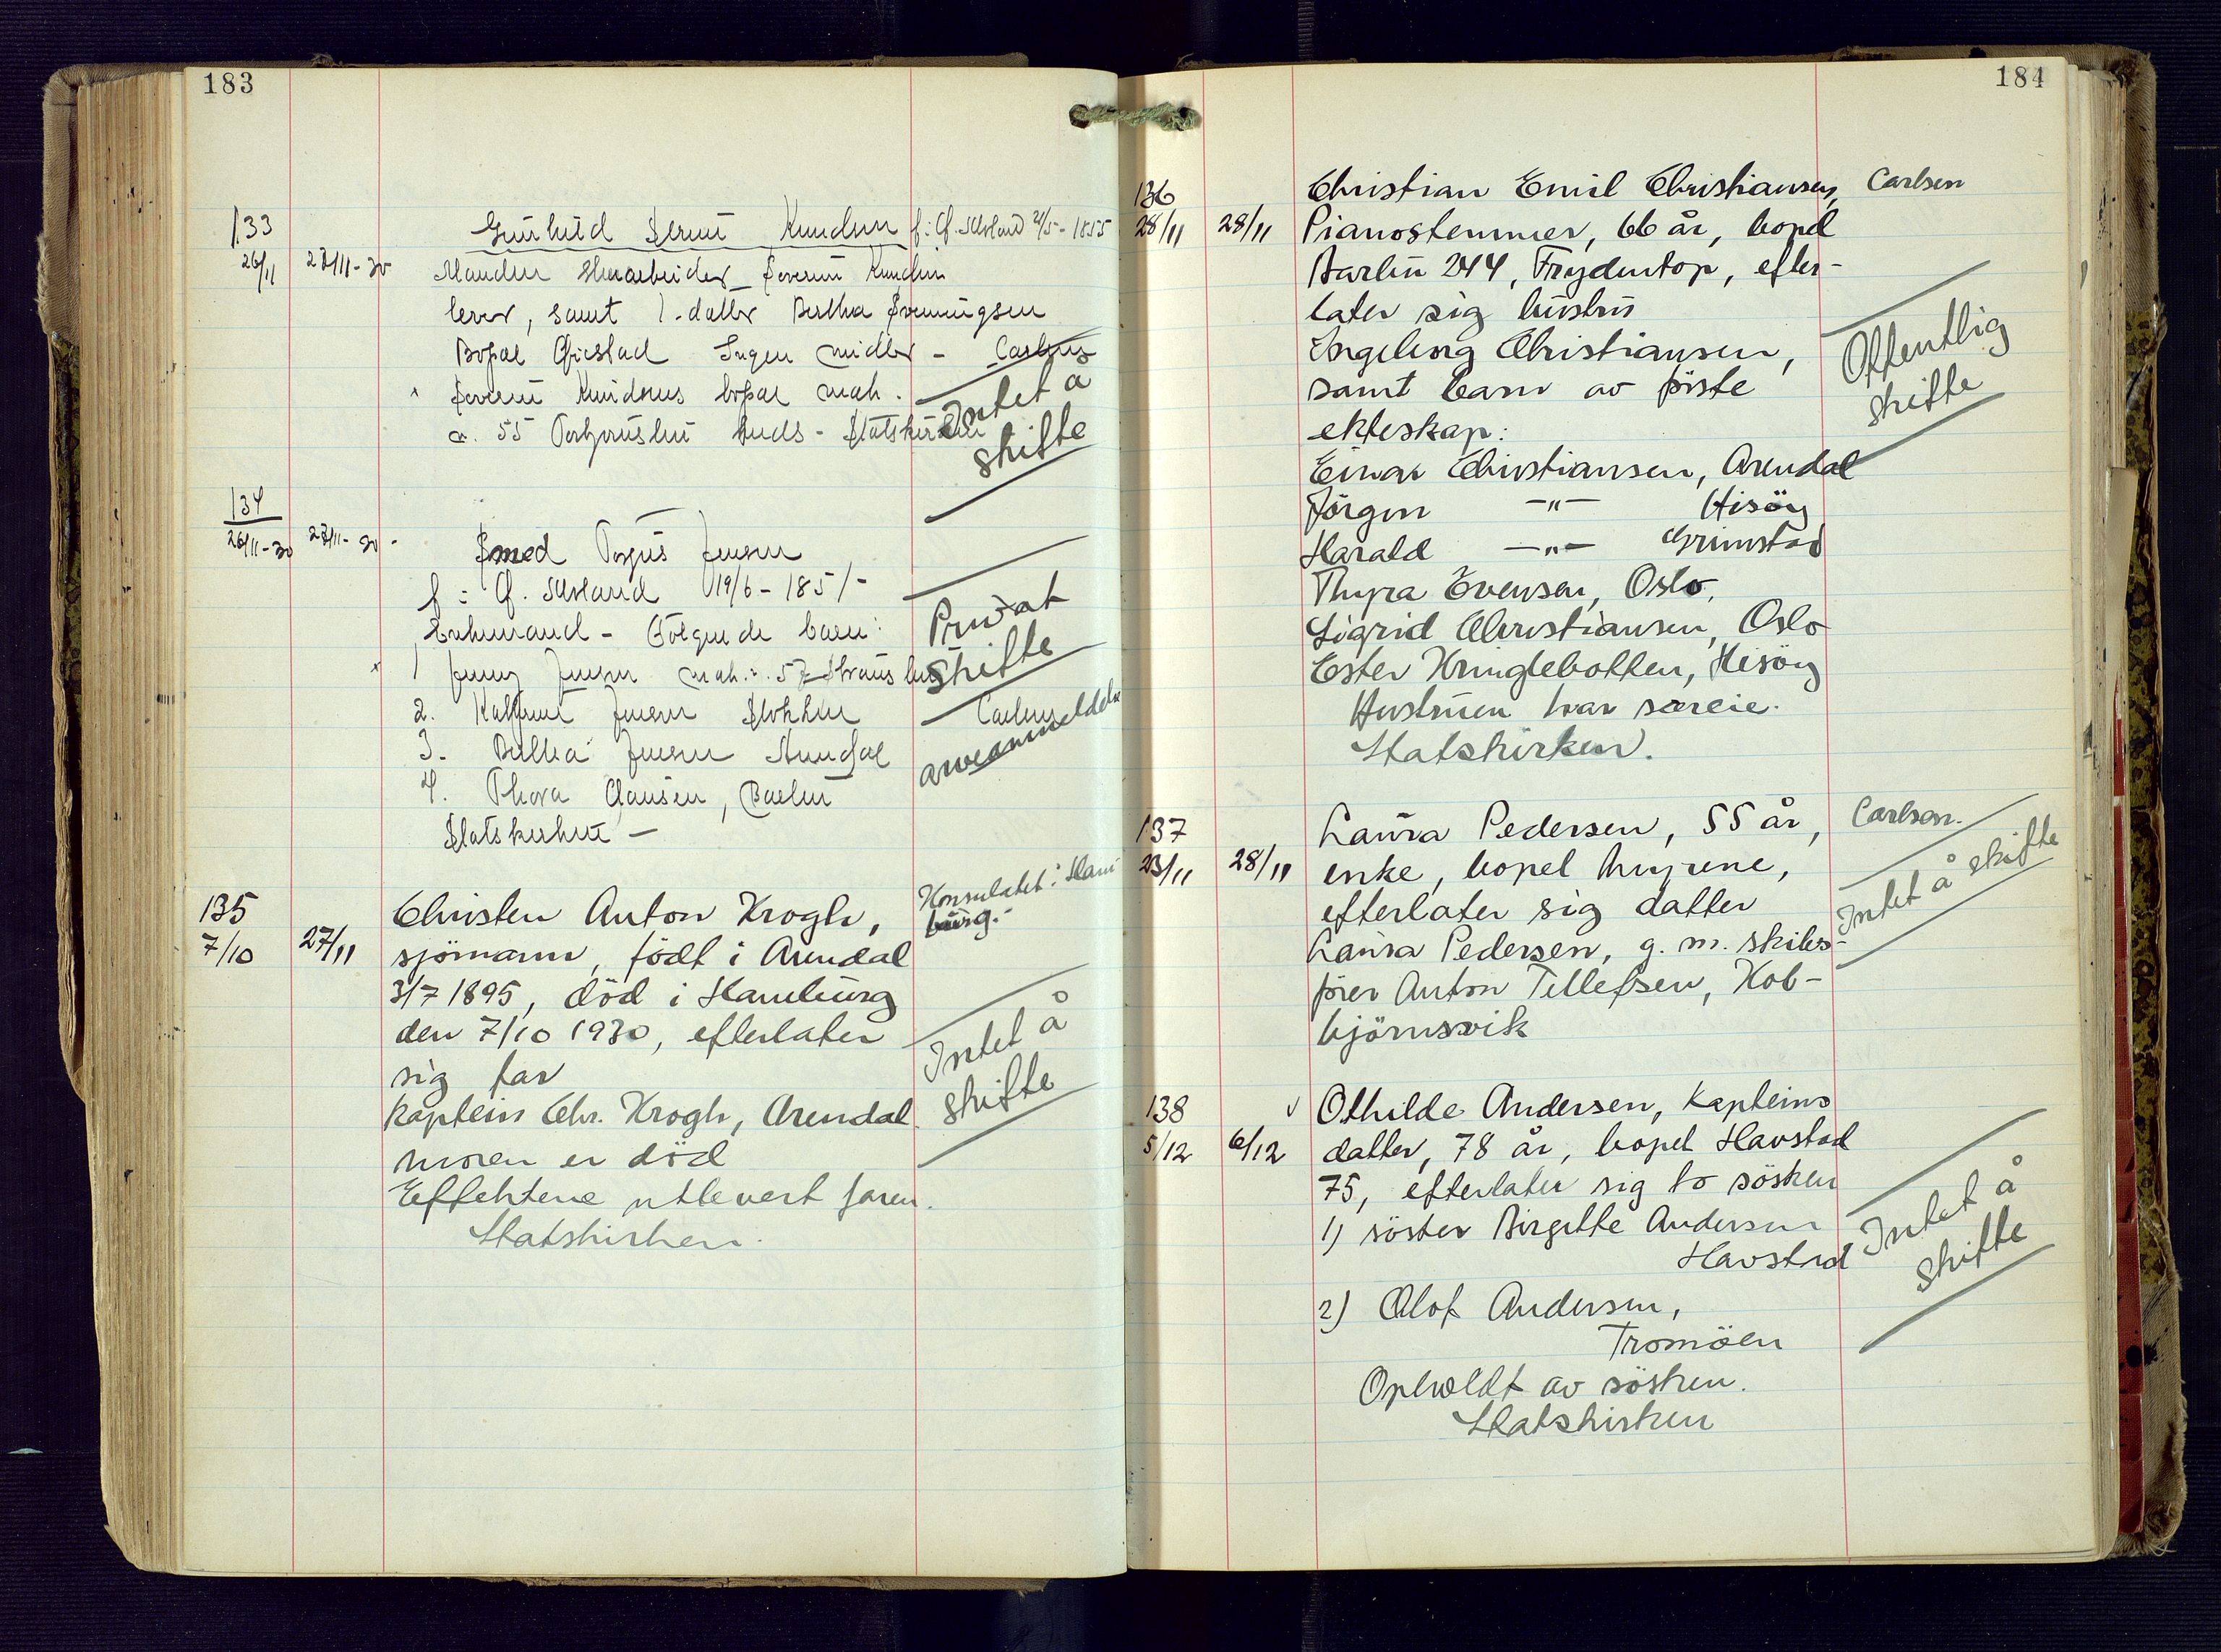 183
133
26/11
27/11-30
Gunhild Knudsen f: Ø. Moland 2/5-1855
Manden Knudsen
lever, samt 1 datter Bertha Svenningsen
Bopæl Ingen midler - Carlsen
Knudsens bopæl mak.
a. 55 Statskirken
Intet å
skifte
134
26/11-30
27/11-30 -
Smed Jensen
f: Ø. Moland 19/6-1851-
Enkemand - Følgende barn:
1 Jenny Jensen mak. : 57
2. Kathrine Jensen
3. Bertha Jensen Arendal
4. Thora Clausen, Barbu
Statskirken -
Privat
skifte
Carlsen
arveanmeldelse
135
7/10
27/11
Christen Anton Krogh,
sjömann, födt i Arendal
3/7 1895, död i Hamburg
den 7/10 1930, efterlater
sig far
kaptein Chr. Krogh, Arendal
moren er död
Effektene utlevert faren.
Statskirken.
Konsulatet i Ham
burg.
Intet å
skifte
184
136
28/11
28/11
Christian Emil Christiansen,
Pianostemmer, 66 år, bopel
Barbu 244, Frydentop, efter-
later sig hustru
Ingeborg Christiansen,
samt barn av förste
ekteskap:
Einar Christiansen, Arendal
Jörgen -"- Hisöy
Harald -"- Grimstad
Thyra Evensen, Oslo,
Sigrid Christiansen, Oslo
Ester Kringlebotten, Hisöy
Hustruen har særeie.
Statskirken.
Carlsen
Offentlig
skifte
137
23/11
28/11
Laura Pedersen, 55 år,
enke, bopel Myrene,
efterlater sig datter
Laura Pedersen, g. m. skibs-
förer Anton Tellefsen, Kol-
björnsvik
Carlsen.
Intet å skifte
138
5/12
6/12
v Othilde Andersen, kapteins
datter, 78 år, bopel Havstad
75, efterlater sig to sösken
1) söster Birgitte Andersen
Havstad
2) Olof Andersen,
Tromöen
Opholdt av sösken.
Statskirken
Intet å
skifte